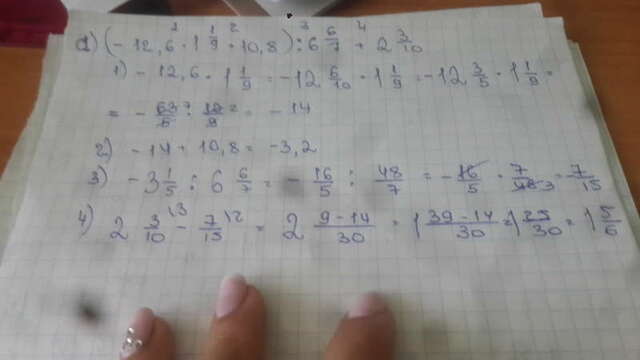 d) (-12,6 · 1 1/9 + 10,8) : 6 6/7 + 2 3/10
1) -12,6 · 1 1/9 = -12 6/10 · 1 1/9 = -12 3/5 · 1 1/9 =
= - 63/5 · 10/9 = -14
2) -14 + 10,8 = -3,2
3) -3 1/5 : 6 6/7 = - 16/5 : 48/7 = - 16/5 · 7/48 3 = 7/15
4) 2 3/10 - 7/15 = 2 9-14/30 = 1 39-14/30 = 1 25/30 = 1 5/6